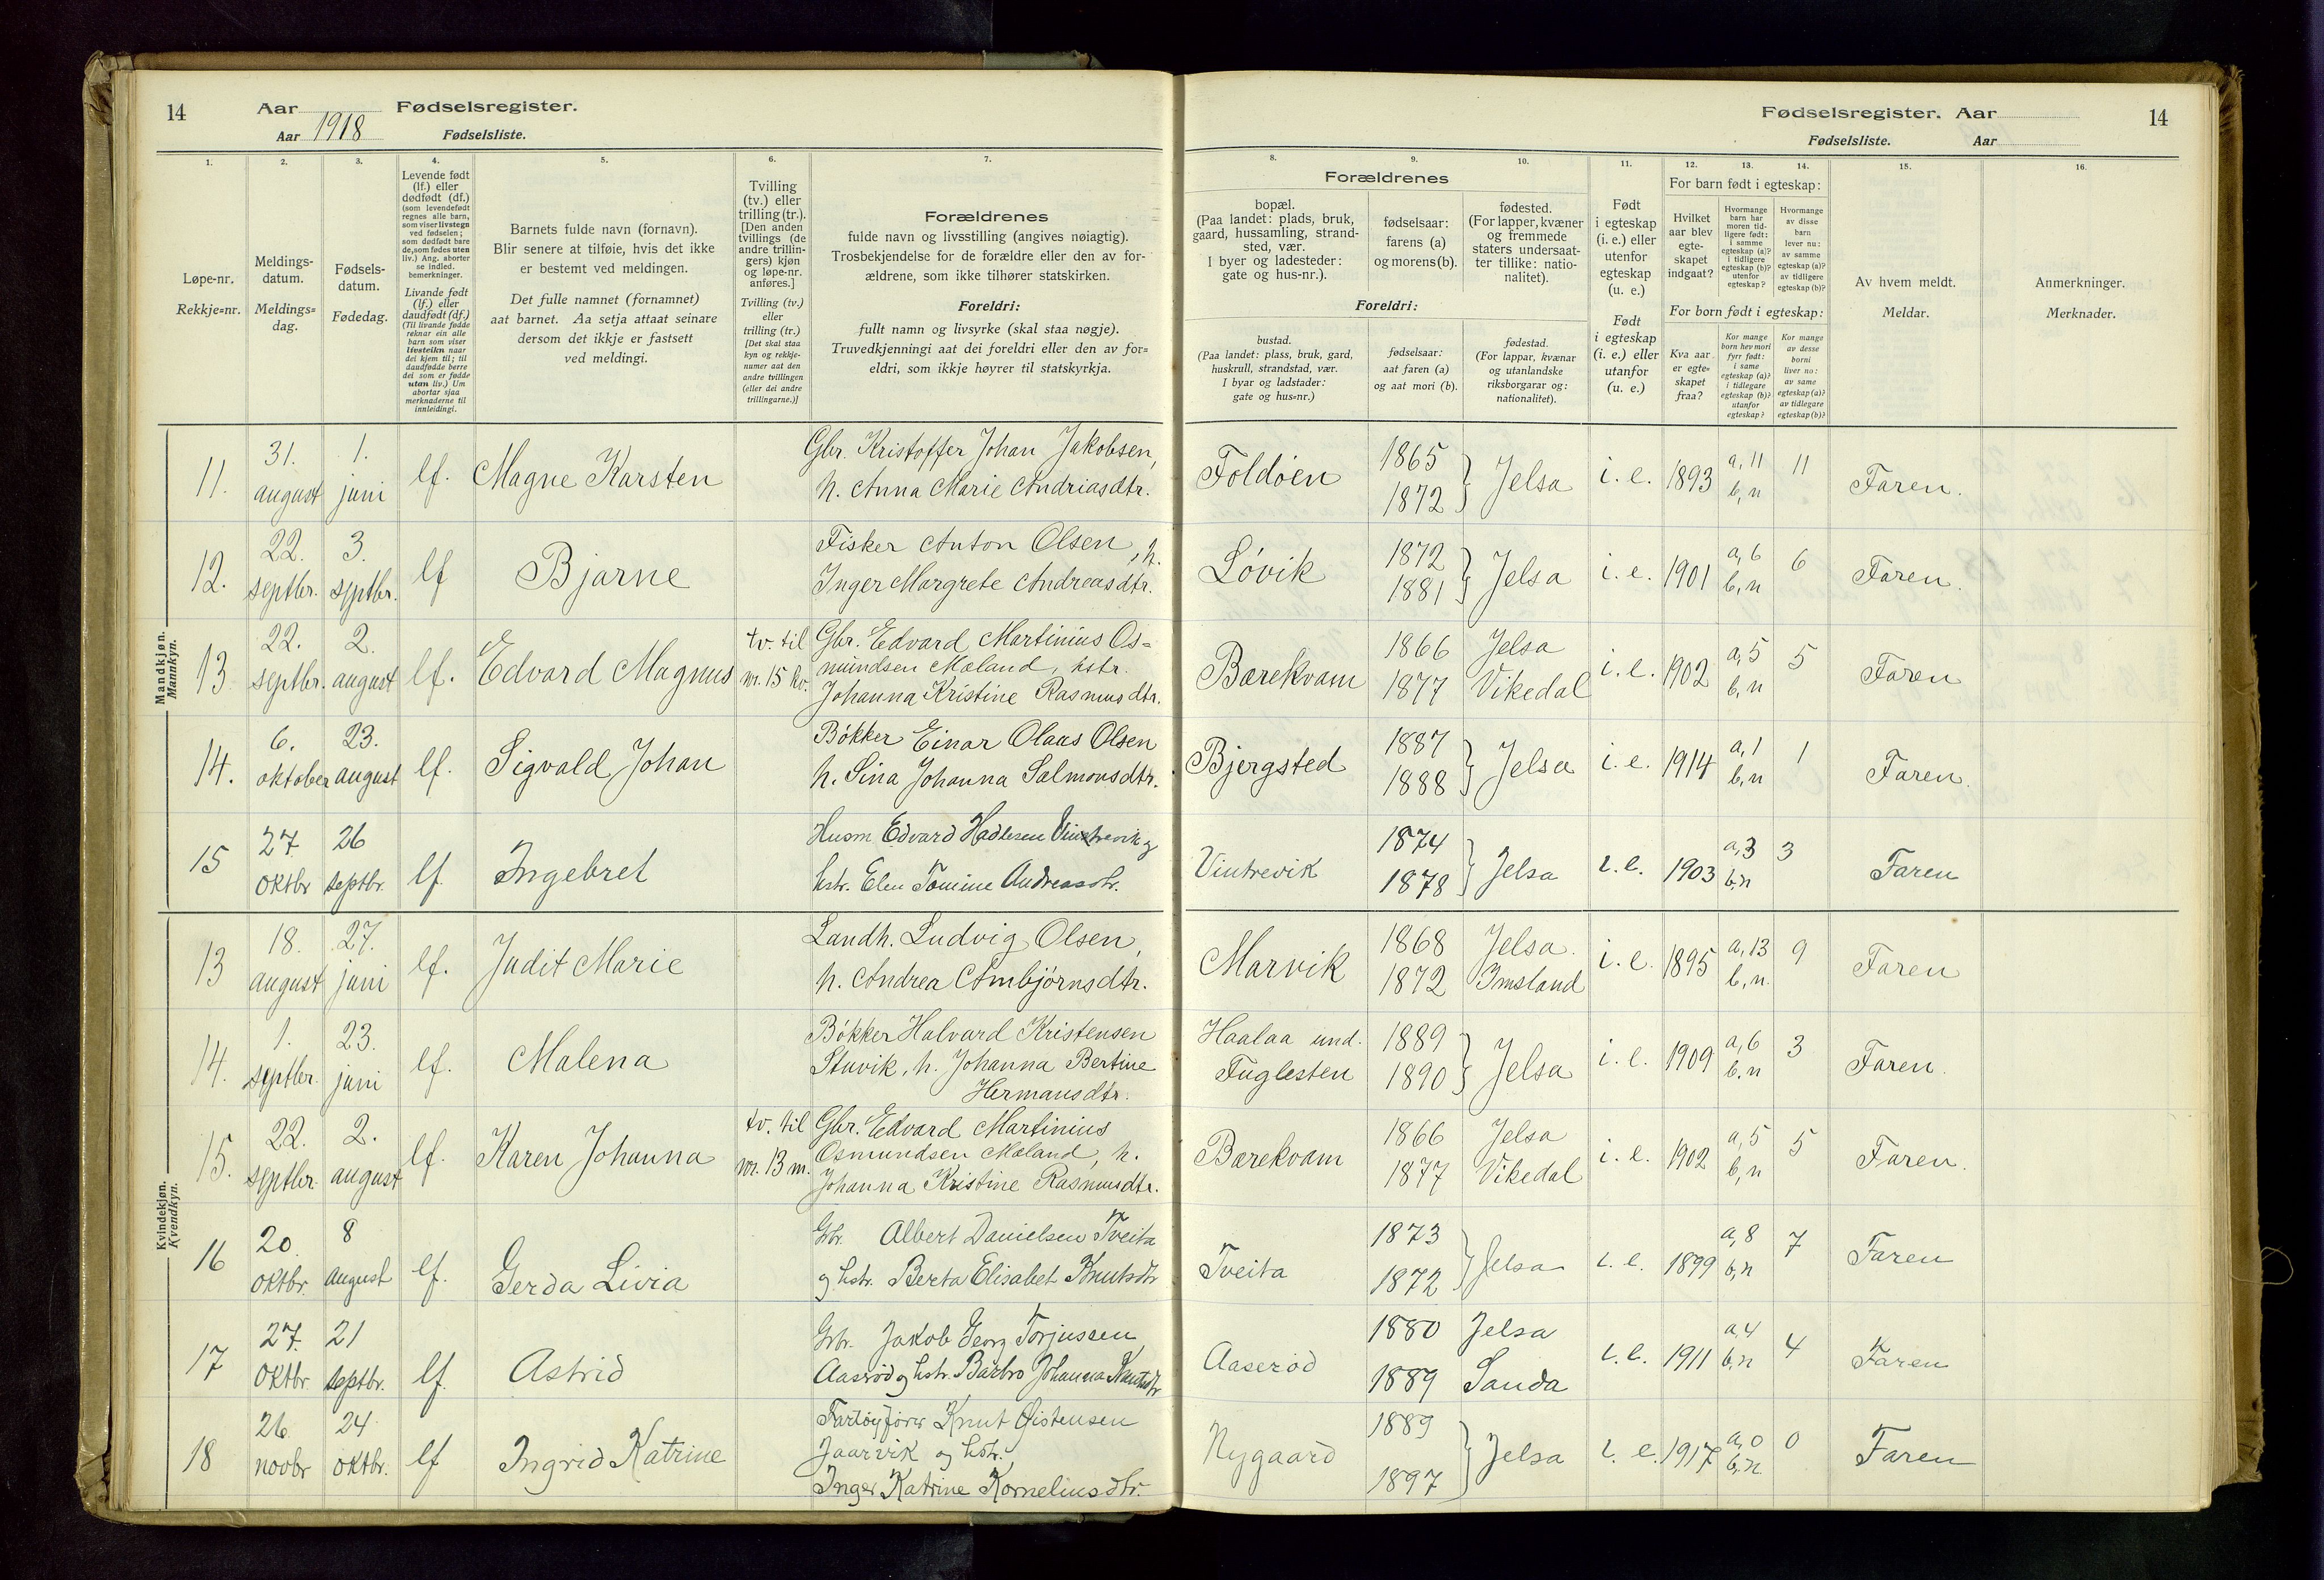 14
Aar Fødselsregister.
Aar 1918 Fødselsliste.
Fødselsregister. Aar
14
Fødselsliste. Aar
1.
Løpe-nr.
Rekkje=nr.
2.
Meldings-
datum.
Meldings=
dag.
3.
Fødsels-
datum.
Fødedag.
4.
Levende født
(lf.) eller
dødfødt (df.)
(som levendefødt
regnes alle barn,
som viser livstegn
ved fødselen;
som dødfødt bare
de, som fødes uten
liv.) Ang. aborter
se indled.
bemerkninger.
Livande født
(lf.) eller
daudfødt (df.)
(Til livande fødde
reknar ein alle
barn som viser
livsteikn naar
dei kjem til; til
daudfødde berre
dei som er fødde
utan liv.) Um
abortar sjaa
merknaderne til
innleidingi.
5.
Barnets fulde navn (fornavn).
Blir senere at tilføie, hvis det ikke
er bestemt ved meldingen.
Det fulle namnet (fornamnet)
aat barnet. Aa setja attaat seinare
dersom det ikkje er fastsett
ved meldingi.
6.
Tvilling
(tv.) eller
trilling (tr.).
[Den anden
tvillings (de
andre trillin-
gers) kjøn
og løpe-nr.
anføres.]
Tvilling (tv.)
eller
trilling (tr.)
[Det skal staa
kyn og rekkje-
numer aat den
andre tvillingen
(eller dei andre
trillingarne.)]
7.
Forældrenes
fulde navn og livsstilling (angives nøiagtig).
Trosbekjendelse for de forældre eller den av for-
ældrene, som ikke tilhører statskirken.
Foreldri:
fullt namn og livsyrke (skal staa nøgje).
Truvedkjenningi aat dei foreldri eller den av for=
eldri, som ikkje høyrer til statskyrkja.
Forældrenes
8.
bopæl.
(Paa landet: plads, bruk,
gaard, hussamling, strand-
sted, vær.
I byer og ladesteder:
gate og hus-nr.).
9.
fødselsaar:
farens (a)
og morens (b).
10.
fødested.
(For lapper, kvæner
og fremmede
staters undersaat-
ter tillike: natio-
nalitet).
Foreldri:
bustad.
(Paa landet: plass, bruk, gard,
huskrull, strandstad, vær.
I byar og ladstader:
gate og hus-nr.)
fødselsaar:
aat faren (a)
og aat mori (b).
fødestad.
(For lappar, kvænar
og utanlandske
riksborgarar og:
nationalitet).
11.
Født
i egteskap
(i. e.) eller
utenfor
egteskap
(u. e.)
Født
i egteskap
(i. e.) eller
utanfor
(u. e.)
12. 13. 14.
For barn født i egteskap:
Hvilket
aar blev
egte-
skapet
indgaat?
Hvormange
barn har
moren tid-
ligere født:
i samme
egteskap (a)?
i tidligere
egteskap (b)?
utenfor
egteskap?
Hvormange
av disse
barn
lever nu:
av samme
egteskap (a)?
av tidligere
egteskap (b)?
For born født i egteskap:
Kva aar
er egte=
skapet
fraa?
Kor mange
born hev mori
fyrr født:
i same
egteskap (a)?
i tidlegare
egteskap (b)?
utanfor
egteskap?
Kor mange
av desse
borni
liver no:
av same
egteskap (a)?
av tidlegare
egteskap (b)?
15.
Av hvem meldt.
Meldar.
16.
Anmerkninger.
Merknader.
Mandkjøn.
Mannkyn.
11. 31. august 1. juni lf. Magne Karsten Gbr. Kristoffer Johan Jakobsen,
h. Anna Marie Andriasdtr. Foldøen 1865 1872 Jelsa i. e. 1893 a, 11 b, n 11 Faren.
12. 22. septbr. 3. septbr. lf Bjarne Fisker Anton Olsen, h.
Inger Margrete Andreasdtr. Løvik 1872 1881 Jelsa i. e. 1901 a, 6 b, n 6 Faren.
13 22. septbr. 2. august lf. Edvard Magnus tv. til nr. 15 kv. Gbr. Edvard Martinius Os=
mundsen Mæland, hstr.
Johanna Kristine Rasmusdtr. Barekvam 1866 1877 Jelsa Vikedal i. e. 1902 a, 5 b, n 5 Faren
14. 6. oktober 23. august lf. Sigvald Johan Bøkker Einar Olaus Olsen
h. Sina Johanna Salmonsdtr. Bjergsted 1887 1888 Jelsa i. e. 1914 a, 1 b, n 1 Faren.
15 27 oktbr 26 septbr. lf. Ingebret Husm Edvard Hadlesen Vintrevik og
hstr. Elen Tomine Andreasdtr. Vintrevik 1874 1878 Jelsa i. e. 1903 a, 3 b, n 3 Faren
Kvindekjøn.
Kvendkyn.
13 18. august 27. juni lf. Judit Marie Landh. Ludvig Olsen,
h. Andrea Ambjørnsdtr. Marvik 1868 1872 Jelsa. Imsland i. e. 1895 a, 13 b, n. 9 Faren
14. 1. septbr. 23. juni lf. Malena Bøkker Halvard Kristensen
Stuvik, h. Johanna Bertine
Hermansdtr. Haalaa und. Fuglesten 1889 1890 Jelsa i. e. 1909 a, 6 b, n 3 Faren.
15. 22. septbr. 2. august lf. Karen Johanna tv. til nr. 13 m. Gbr. Edvard Martinius
Osmundsen Mæland, h.
Johanna Kristine Rasmusdtr. Barekvam 1866 1877 Jelsa Vikedal i. e. 1902 a, 5 b, n 5 Faren.
16 20. oktbr. 8 august lf. Gerda Livia Gbr. Albert Danielsen Tveita
og hstr. Berta Elisabet Knutsdtr Tveita 1873 1872 Jelsa i. e. 1899 a, 8 b, n 7 Faren
17 27. oktbr. 21 septbr. lf. Astrid Gbr. Jakob Georg Torjussen
Aaserød og hstr. Barbro Johanna Knutsdtr Aaserød 1880 1889 Jelsa Sauda i. e. 1911 a, 4 b, n 4 Faren
18 26 novbr 24 oktbr. lf Ingrid Katrine Fartøyfører Knut Øistensen
Jaarvik og hstr.
Inger Katrine Korneliusdtr. Nygaard 1889 1897 Jelsa i. e. 1917 a, 0 b, n. 0 Faren